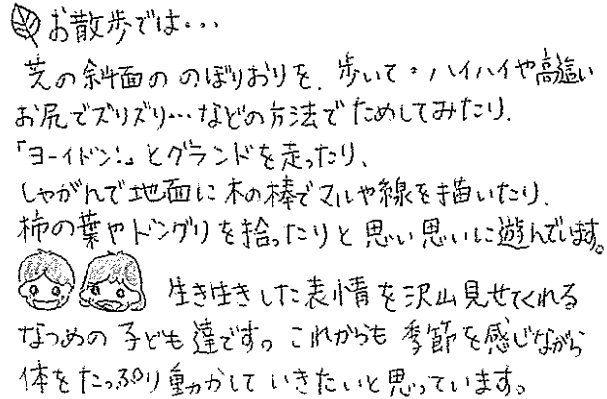 お散歩では・・・
芝の斜面ののぼりおりを、歩いて・ハイハイや高這い
お尻でズリズリ・・・などの方法でためしてみたり、
「ヨーイドン!」とグランドを走ったり、
しゃがんで地面に木の棒でマルや線を描いたり、
柿の葉やドングリを拾ったりと思い思いに遊んでいます。
生き生きした表情を沢山見せてくれる
なつめの子ども達です。これからも季節を感じながら
体をたっぷり動かしていきたいと思っています。